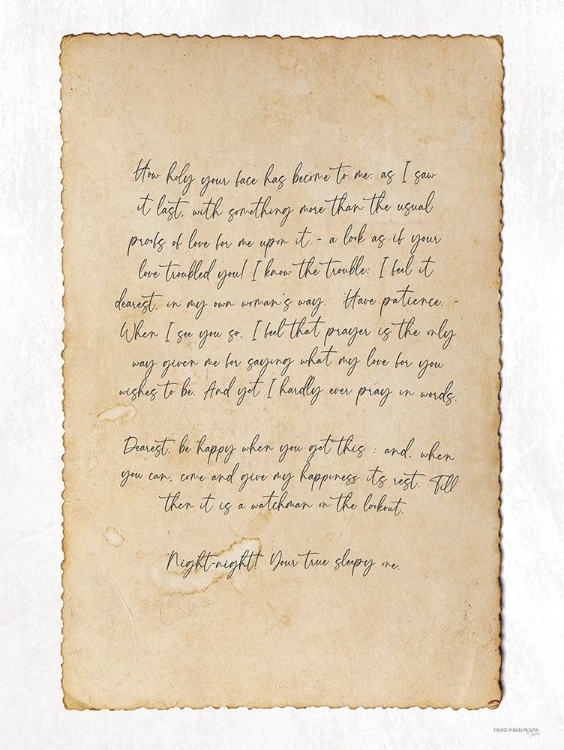 How holy your face has become to me: as I saw
it last, with something more than the usual
proofs of love for me upon it - a look as if your
love troubled you! I know the trouble: I feel it
dearest, in my own woman's way. Have patience. -
When I see you so, I feel that prayer is the only
way given me for saying what my love for you
wishes to be. And yet I hardly ever pray in words.
Dearest, be happy when you get this : and, when
you can, come and give my happiness its rest. Till
then it is a watchman on the lookout.
Night-night! Your true sleepy one.
FRONT PORCH PICKINS